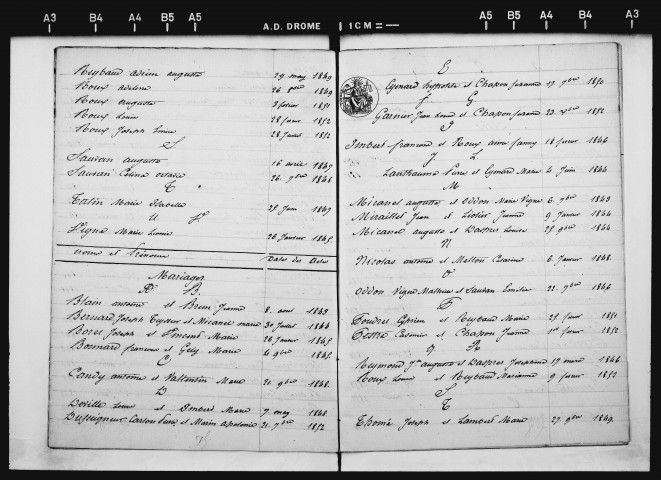 A3 B4 A4 B5 A5 A.D. DROME 1CM= A5 B5 A4 B4 A3
Reybaud adrien auguste 29 may 1849
Roux adeline 26 1849
Roux auguste 3 fevrier 1851
Roux Louis 28 fevrier 1852
Roux Joseph Louis 28 1852
S
Sauvan auguste 16 avril 1849
Sautan Celina 26 9bre 1848
T
Talin Marie Isabelle 25 Juin 1847
U V
Vigne Marie Louise 26 Janvier 1845
nom et Prénoms Dates des Actes
Mariages
B
Blain antoine et Brun Jeanne 8 aout 1843
Bernard Joseph et Micanel marie 30 Juillet 1844
Borel Joseph et Vincent Marie 28 Janvier 1845
Bonnard francois et Gely Marie 4 9bre 1845
C
Candy antoine et Vallentin Marie 21 9bre 1848
D
Deville Louis et Marie 7 may 1848
et Marin apolonie 21 7bre 1852
E
Eymard hyppolite et Chapon 17 9bre 1850
F G
Garnier Jean Louis et Chapon 23 1852
I
Imbert francois et Roux anne fanny 18 fevrier 1846
J L
Lanthaume Pierre et Eymard Marie 4 Juin 1844
M
Micanel auguste et Oddon Marie Vigne 6 7bre 1843
Miraillet Jean et Jeanne 9 Janvier 1844
Micanel auguste et Daspres Louise 25 9bre 1844
N
Nicolas antoine et Mellon 6 Janvier 1848
O
Oddon Vigne Mathieu et Sautan Emilie 21 7bre 1846
P
et Reybaud Marie 25 fevrier 1851
Casimir et Chapon Jeanne 1er fevrier 1852
Q R
Reymond auguste et Daspres 17 mars 1846
Roux Louis et Reybaud Marianne 9 fevrier 1852
S
T
Thomé Joseph et Lambert Marie 27 9bre 1849